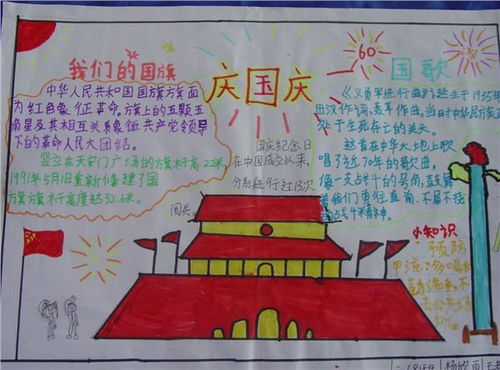 我们的国旗
中华人民共和国国旗旗面
为红色象征革命。旗上的五颗五
角星及其相互关系象征共产党领导
下的革命人民大团结。
竖立在天安门广场的方杆高22米
1991年5月1日重新修建了国
旗旗杆高度达32.6米。
庆国庆
国庆纪念日
在中国成立以来,
分别进行过13次
阅兵。
60
国歌
《义勇军进行曲》诞生于1935年
田汉作词,聂耳作曲。当时中华民族正
处于生死存亡的关头。
这首在中华大地上歌
唱了近70年的歌曲。
像一支战斗的号角,鼓舞
着我们勇往直前、不屈不挠
战斗精神。
小知识
预防
甲流:多
洗手,不
去公共